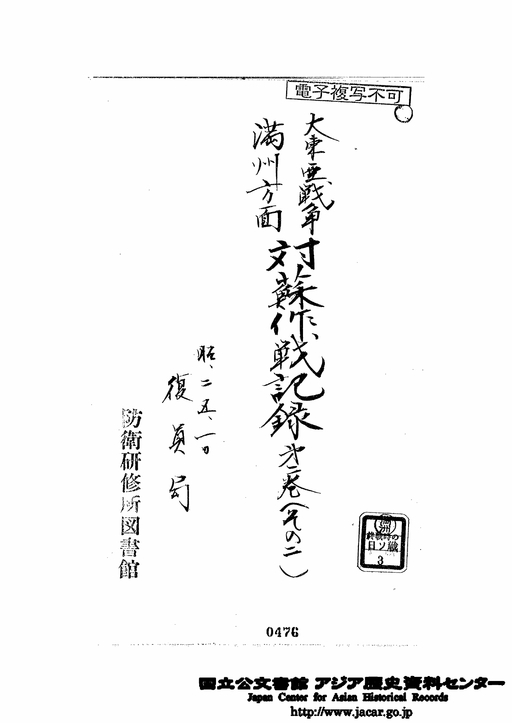 電子複写不可
大東亜戦争
満州方面
対蘇作戦記録第二巻(その二)
昭、二五、一〇
復員局
防衛研修所図書館
満洲
終戦時の
日ソ戦
3
0476
国立公文書館 アジア歴史資料センター
Japan Center for Asian Historical Records
http://www.jacar.go.jp